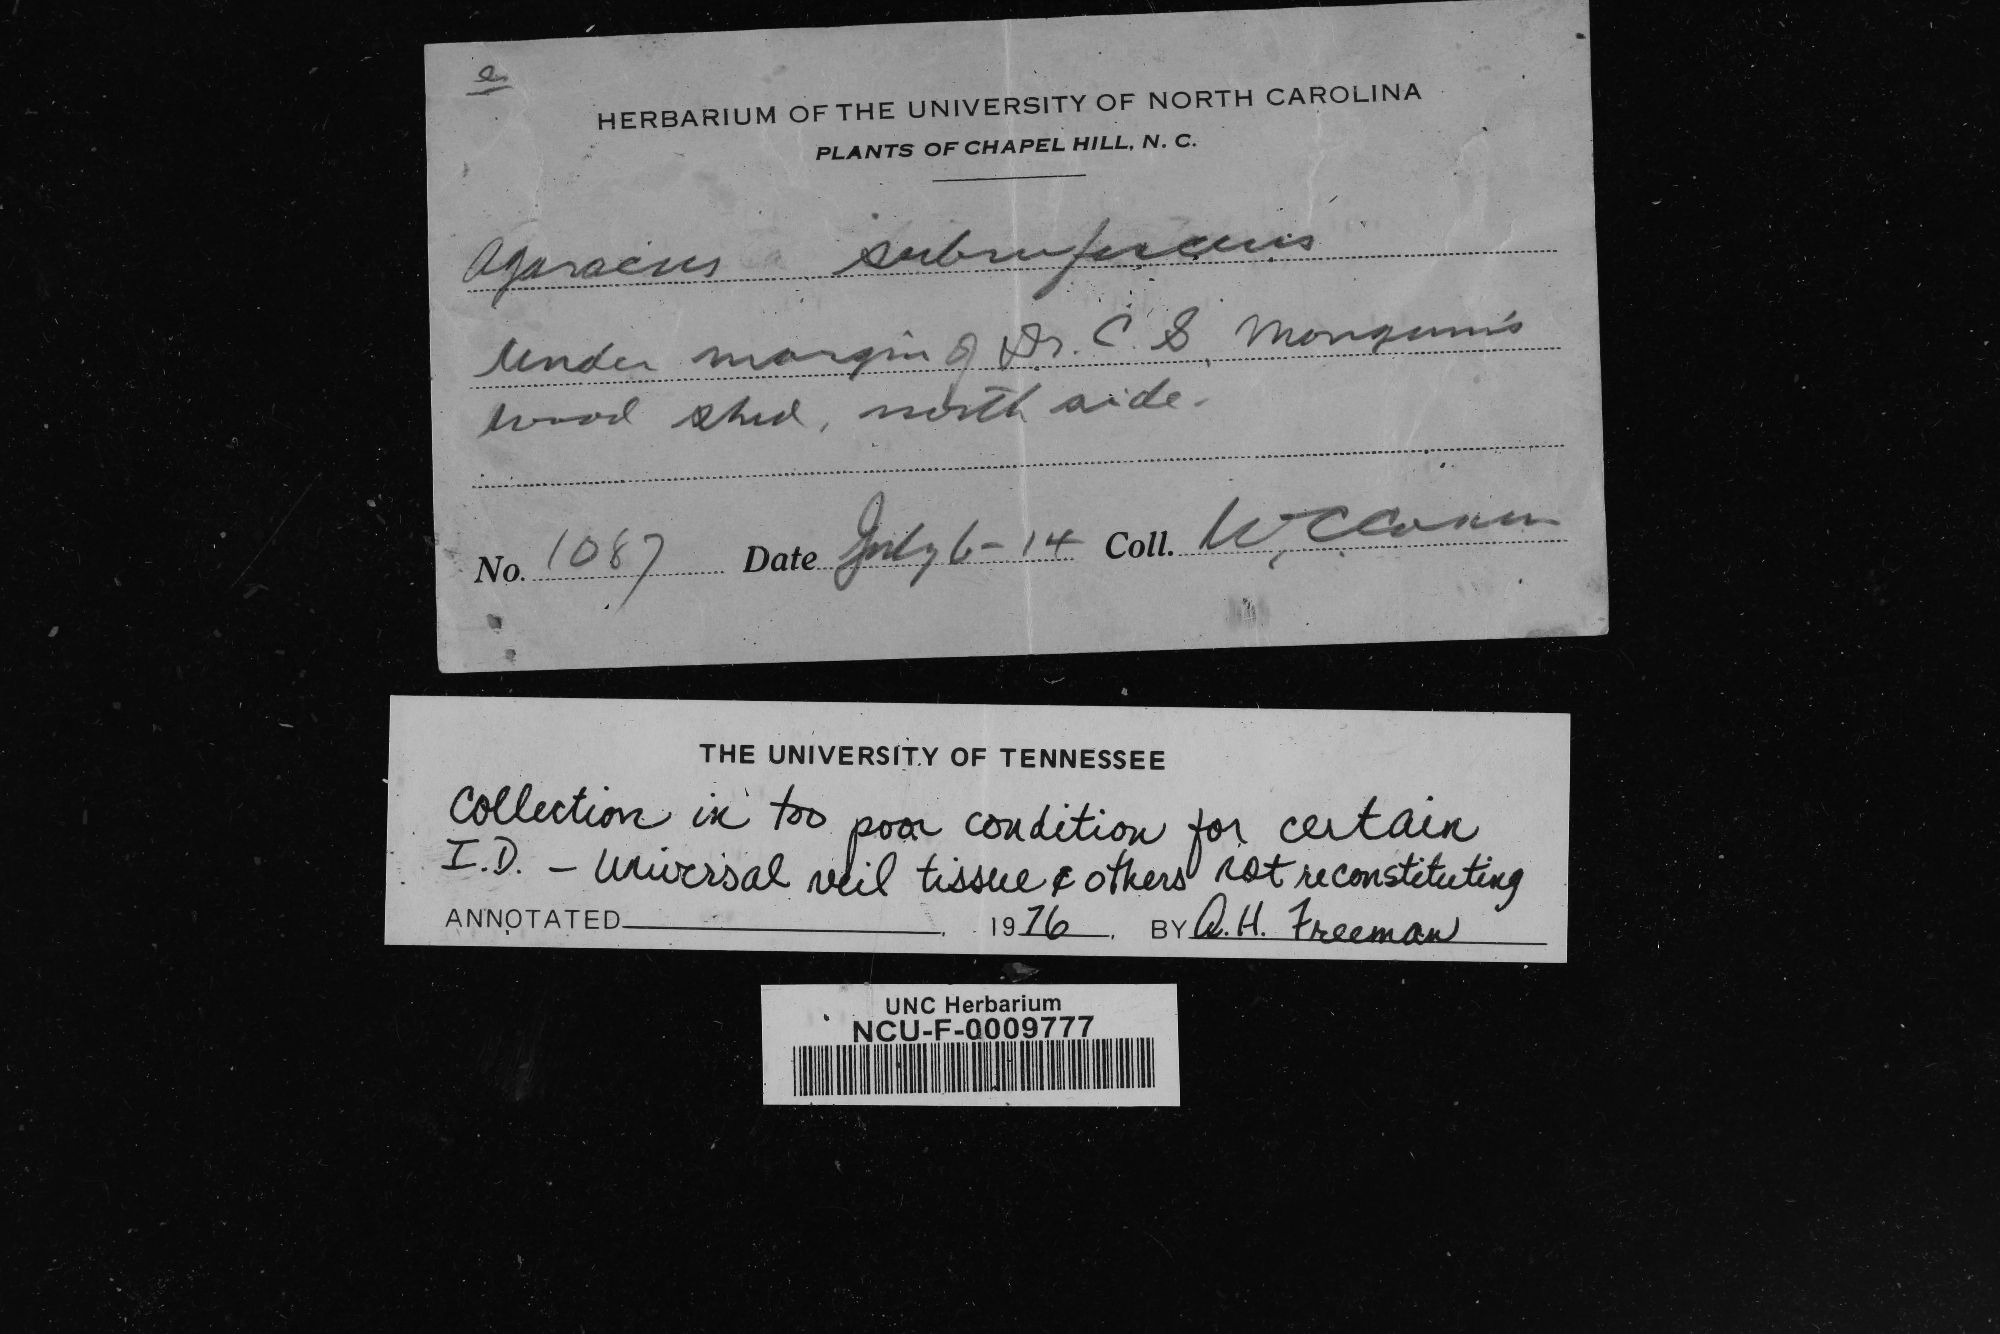 e
HERBARIUM OF THE UNIVERSITY OF NORTH CAROLINA
PLANTS OF CHAPEL HILL, N. C.
Agaracius subrufescens
Under margin of Dr. C. S. Mangum's
wood shed, north side.
No. 1087 Date July 6-14 Coll. W. C. Coker
THE UNIVERSITY OF TENNESSEE
Collection in too poor condition for certain
I.D. – Universal veil tissue & others not reconstituting
ANNOTATED , 1976 , BY A. H. Freeman
UNC Herbarium
NCU-F-0009777